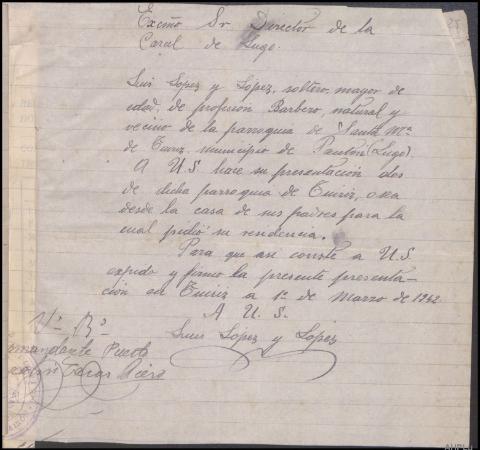 Excmo Sr Director de la
Carcel de Lugo.
25
Luis Lopez y López, soltero, mayor de
edad, de profesión Barbero, natural y
vecino de la parroquia de Santa Mª
de Tuiriz, municipio de Pantón (Lugo).
A U.S. hace su presentación
de dicha parroquia de Tuiriz, o sea
desde la casa de sus padres para la
cual pidió su residencia.
Para que asi conste a U.S.
expido y firmo la presente presenta-
ción en Tuiriz a 1º de Marzo de 1942
A U.S.
Luis López y López
Vº Bº
omandante Puesto